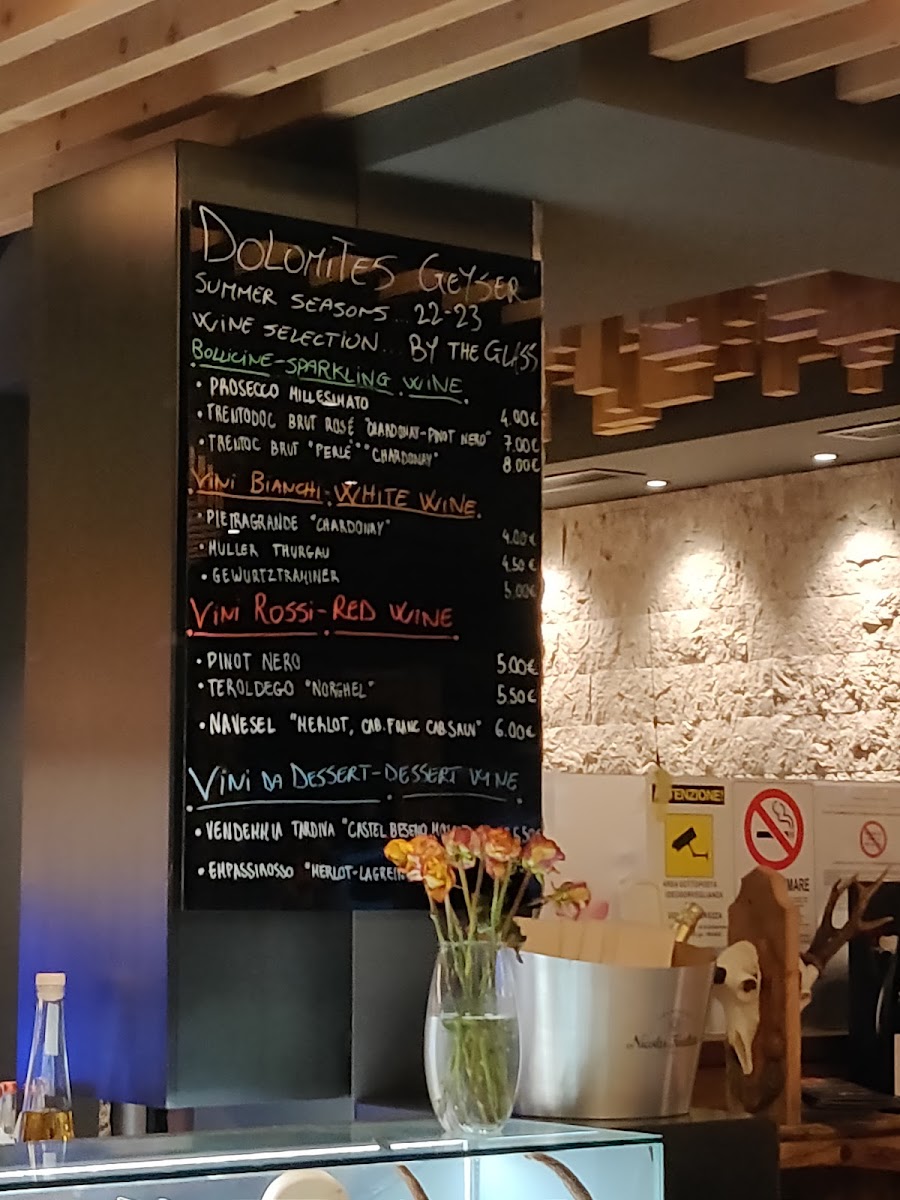 DOLOMITES GEYSER
SUMMER SEASONS .. 22-23
WINE SELECTION .. BY THE GLASS
BOLLICINE-SPARKLING WINE.
• PROSECCO MILLESIMATO 4.00€
• TRENTODOC BRUT ROSÉ "CHARDONAY-PINOT NERO" 7.00€
• TRENTOC BRUT "PERLÉ" "CHARDONAY" 8.00€
VINI BIANCHI-WHITE WINE.
• PIETRAGRANDE "CHARDONAY" 4.00€
• MULLER THURGAU 4.50€
• GEWURTZTRAMINER 5.00€
VINI ROSSI-RED WINE
• PINOT NERO 5.00€
• TEROLDEGO "NORGHEL" 5.50€
• NAVESEL "MERLOT, CAB. FRANC CAB SAUV" 6.00€
VINI DA DESSERT-DESSERT WINE
• VENDEMMIA TARDIVA "CASTEL BESENO
• EMPASSIROSSO "MERLOT-LAGREIN
ATTENZIONE!
AREA SOTTOPOSTA
VIDEOSORVEGLIANZA
MARE
Nicolas